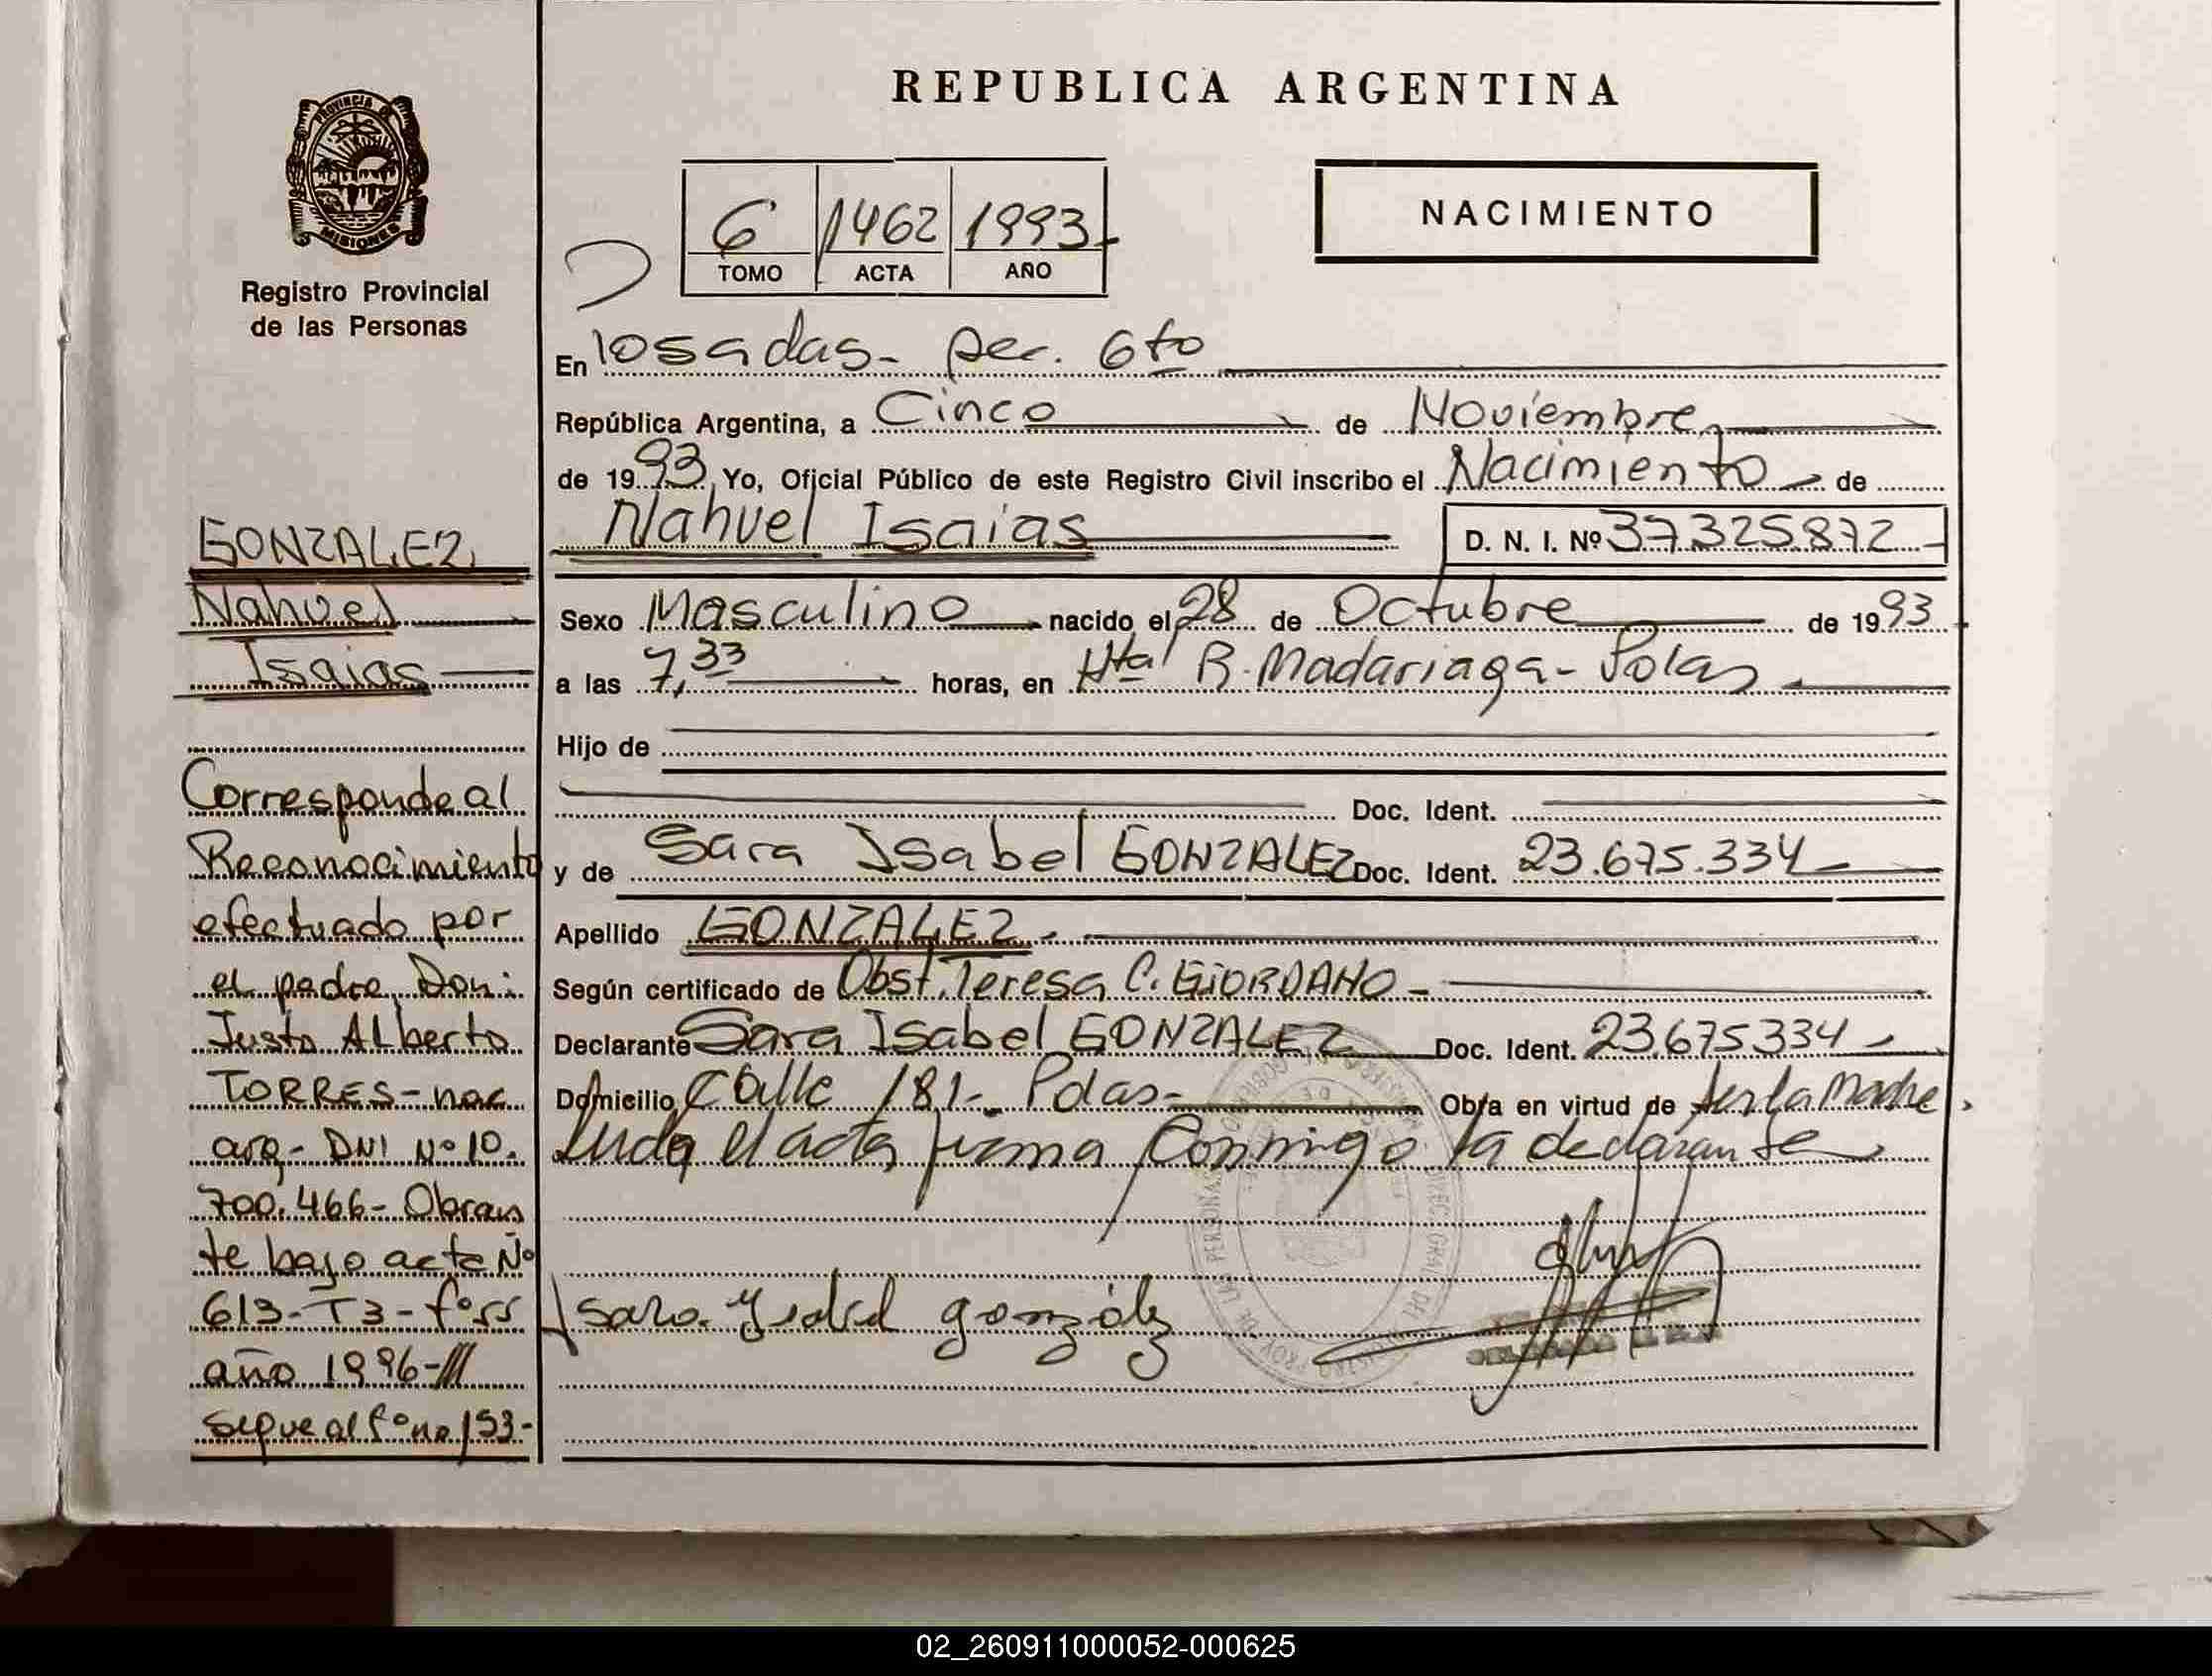 REPUBLICA ARGENTINA
PROVINCIA DE
MISIONES
Registro Provincial
de las Personas
6 1462 1993
TOMO ACTA AÑO
NACIMIENTO
En Posadas- Sec. 6to
República Argentina, a Cinco de Noviembre
de 1993 Yo, Oficial Público de este Registro Civil inscribo el Nacimiento de
Nahuel Isaias D. N. I. Nº 37325872
Sexo Masculino nacido el 28 de Octubre de 1993
a las 7,33 horas, en Htal R. Madariaga- Pdas
Hijo de
Doc. Ident.
y de Sara Isabel GONZALEZ Doc. Ident. 23.675.334
Apellido GONZALEZ.
Según certificado de Obst. Teresa C. GIORDANO -
Declarante Sara Isabel GONZALEZ Doc. Ident. 23.675334
Domicilio Calle 181- Pdas- Obra en virtud de ser la Madre
Leida el acta firma Conmigo la declarante
Sara Ysabel González
GONZALEZ
Nahuel
Isaias
Corresponde al
Reconocimiento
efectuado por
el padre Don:
Justo Alberto
TORRES-nac
arg- DNI Nº 10.
700.466- Obran
te bajo acta Nº
613-T3-fº55
año 1996-///
sigue al fº nº 153-
02_260911000052-000625